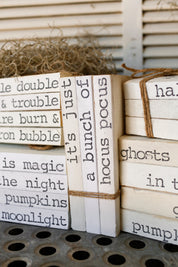 le double
& trouble
re burn &
ron bubble
is magic
the night
pumpkins
moonlight
it's just
a bunch of
hocus pocus
ha
ghosts
in t
pumpkins
pump